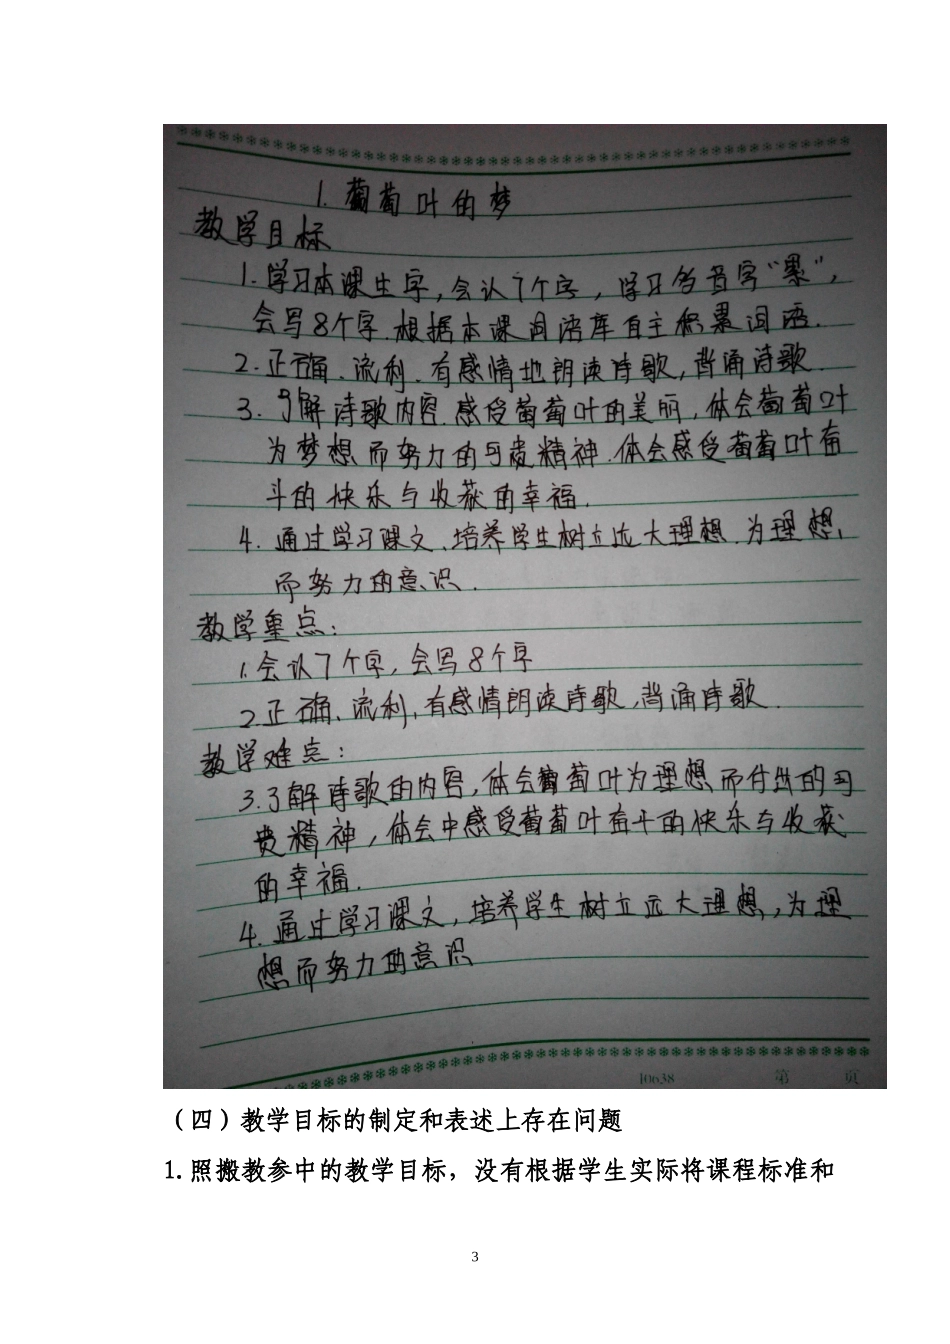 1. 葡萄叶的梦
教学目标
1. 学习本课生字,会认7个字,学习多音字“累”,
会写8个字.根据本课词语库自主积累词语.
2.正确、流利、有感情地朗读诗歌,背诵诗歌.
3. 了解诗歌内容.感受葡萄叶的美丽,体会葡萄叶
为梦想而努力的可贵精神.体会感受葡萄叶奋
斗的快乐与收获的幸福.
4. 通过学习课文、培养学生树立远大理想.为理想,
而努力的意识.
教学重点:
1.会认7个字,会写8个字
2.正确、流利,有感情朗读诗歌,背诵诗歌.
教学难点:
3.了解诗歌的内容,体会葡萄叶为理想而付出的可
贵精神,体会中感受葡萄叶奋斗的快乐与收获
的幸福.
4. 通过学习课文,培养学生树立远大理想,为理
想而努力的意识
10638 第 页
（四）教学目标的制定和表述上存在问题
1.照搬教参中的教学目标，没有根据学生实际将课程标准和
3